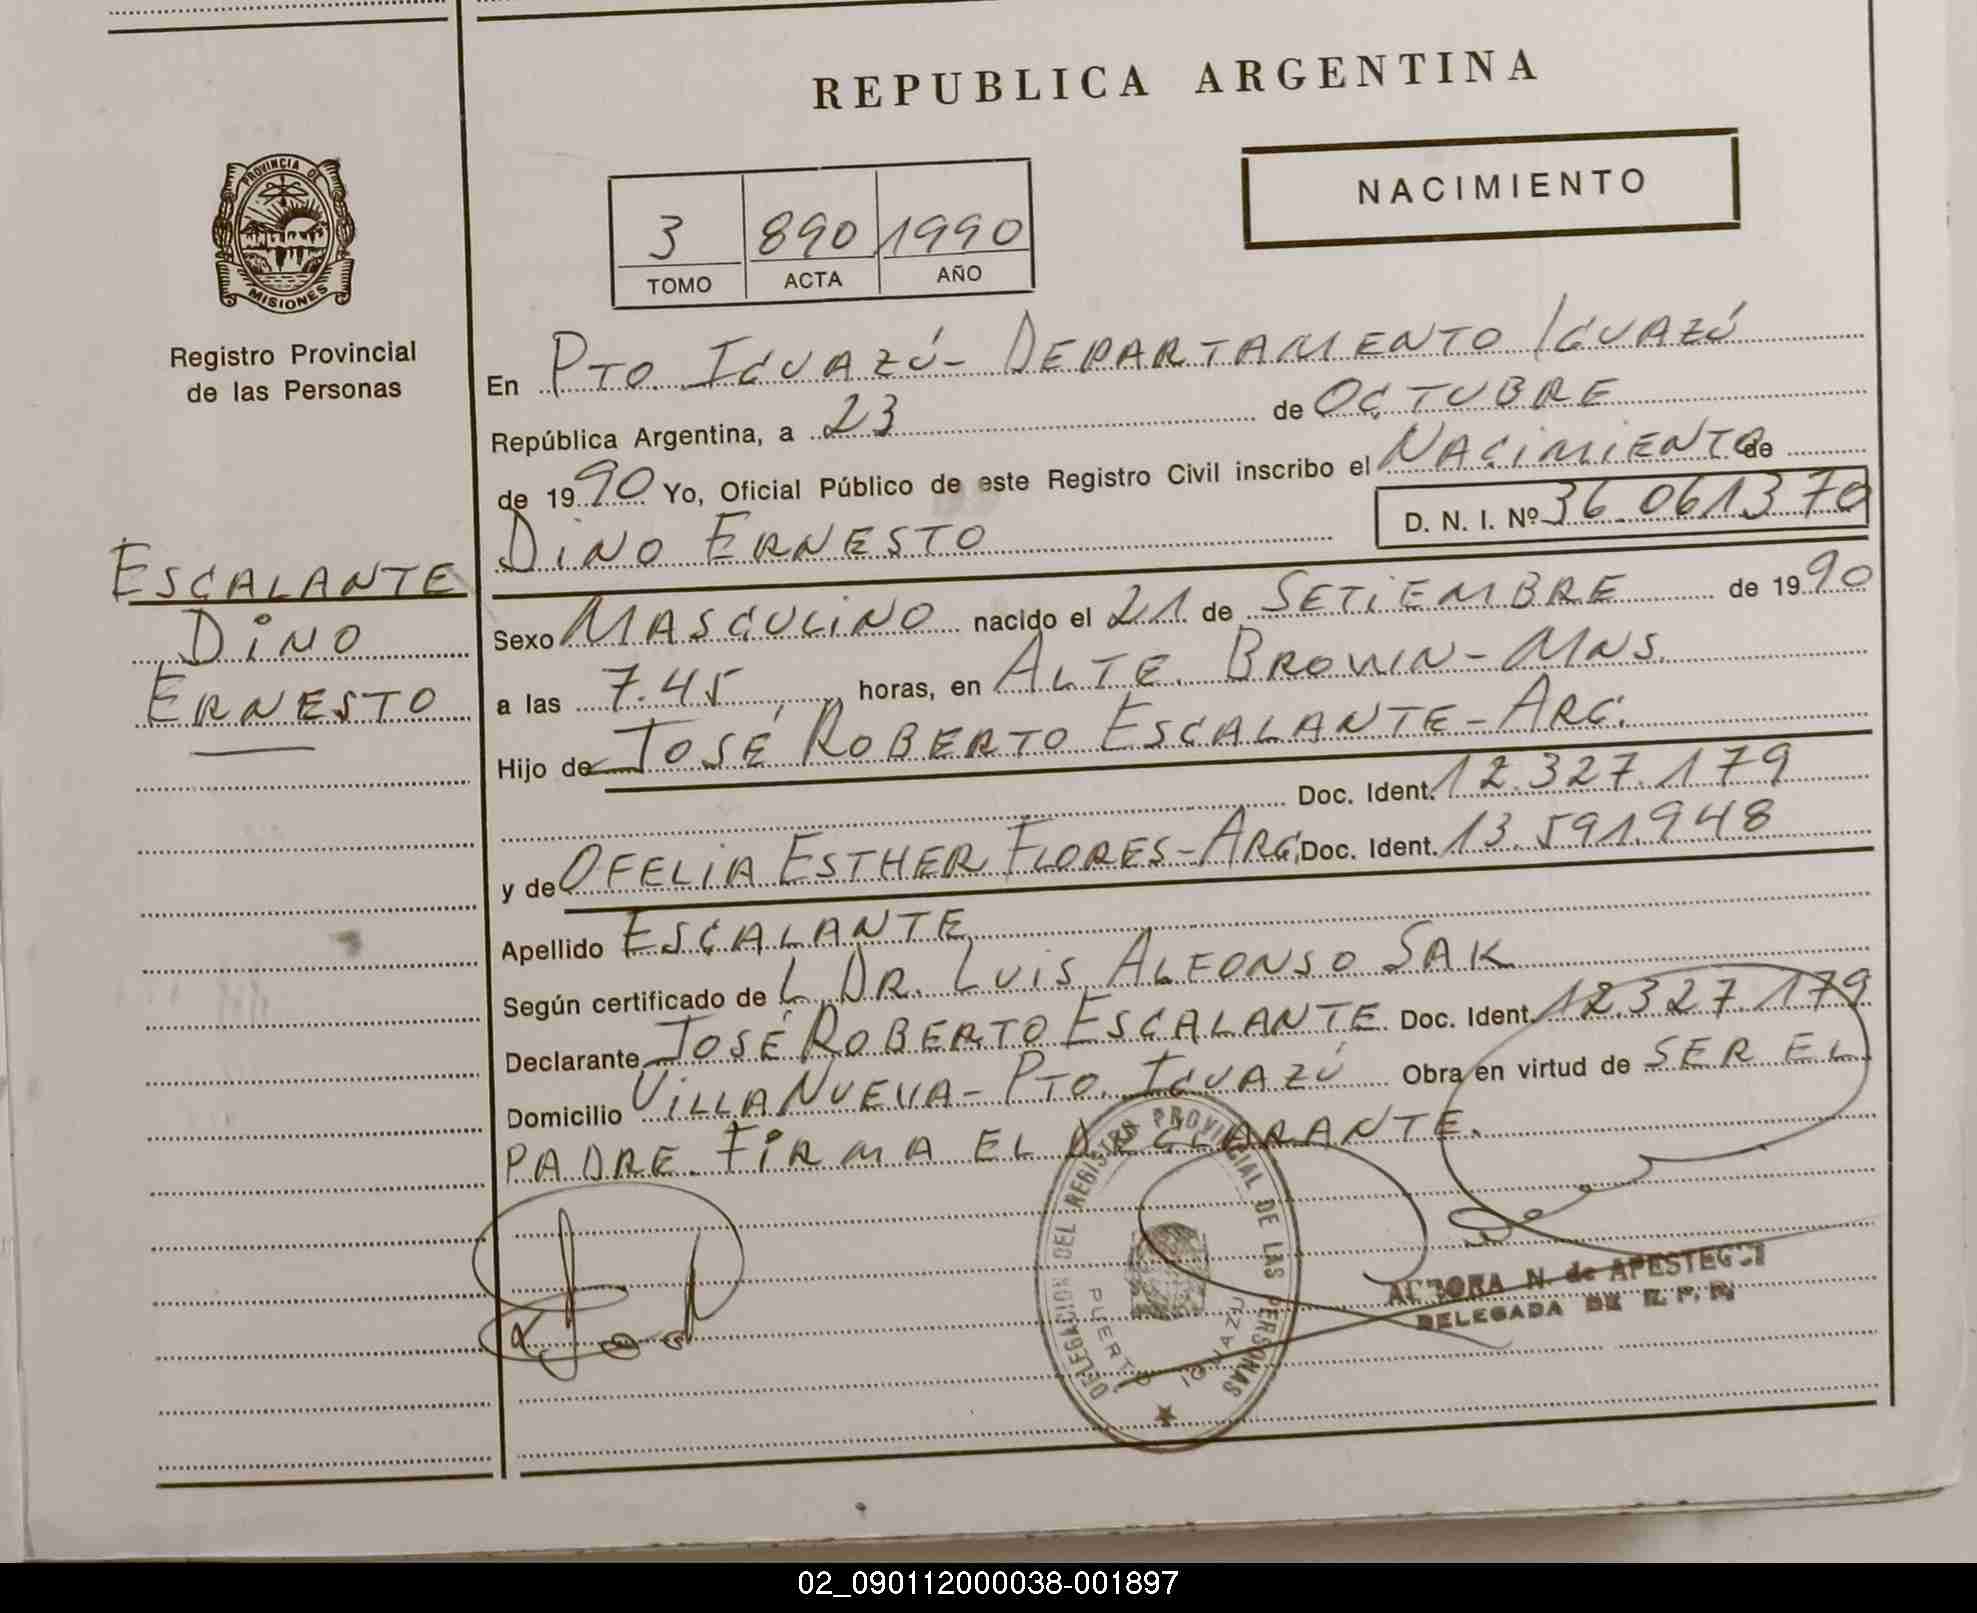 REPUBLICA ARGENTINA
NACIMIENTO
3 890 1990
TOMO ACTA AÑO
PROVINCIA DE
MISIONES
Registro Provincial
de las Personas
ESCALANTE
DINO
ERNESTO
En PTO. IGUAZÚ - DEPARTAMENTO IGUAZÚ
República Argentina, a 23 de OCTUBRE
de 1990 Yo, Oficial Público de este Registro Civil inscribo el NACIMIENTO de
DINO ERNESTO D. N. I. Nº 36.061.370
Sexo MASCULINO nacido el 21 de SETIEMBRE de 1990
a las 7.45 horas, en ALTE. BROWN - MNS.
Hijo de JOSÉ ROBERTO ESCALANTE - ARG.
Doc. Ident. 12.327.179
y de OFELIA ESTHER FLORES - ARG. Doc. Ident. 13.591.948
Apellido ESCALANTE
Según certificado de L DR. LUIS ALFONSO SAK
Declarante JOSÉ ROBERTO ESCALANTE Doc. Ident. 12.327.179
Domicilio VILLA NUEVA - PTO. IGUAZÚ Obra en virtud de SER EL
PADRE. FIRMA EL DECLARANTE.
DELEGACION DEL REGISTRO PROVINCIAL DE LAS PERSONAS
PUERTO IGUAZU
AURORA N. de APESTEGUI
DELEGADA DE R. P. P.
02_090112000038-001897